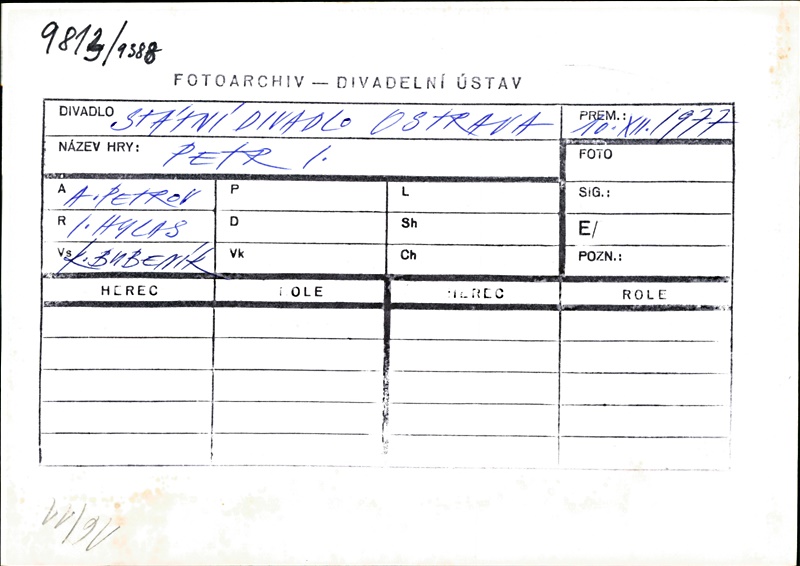 FOTOARCHIV — DIVADELNÍ ÚSTAV
DIVADLO STÁTNÍ DIVADLO OSTRAVA PREM.: 10. XII. 1977
NÁZEV HRY: PETR I. FOTO
A A. PETROV P L SIG.:
R I. HYLAS D Sh E/
Vs K. BUBENÍK Vk Ch POZN.:
HEREC ROLE HEREC ROLE